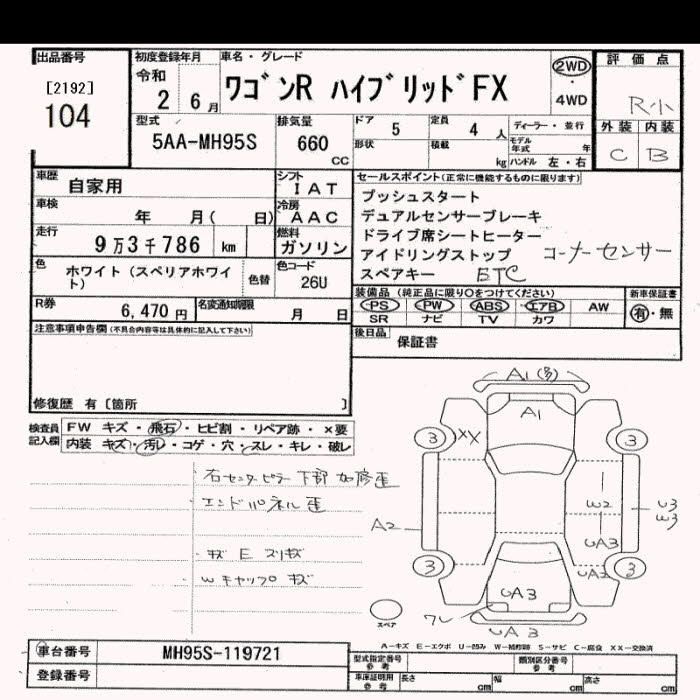 出品番号
[2192]
104
初度登録年月
令和
2 6月
車名・グレード
ワゴンR ハイブリッドFX
2WD
・
4WD
評価点
R小
外装 内装
C B
型式
5AA-MH95S
排気量
660
CC
ドア 5
定員 4 人
ディーラー・並行
形状
積載 kg
モデル年式 年
ハンドル 左・右
車歴
自家用
シフト
IAT
車検
年 月( 日)
冷房
AAC
走行
9万3千786 km
燃料
ガソリン
色
ホワイト(スペリアホワイト)
色替
色コード
26U
R券
6,470円
名変通知期限
月 日
セールスポイント(正常に機能するものに限ります)
プッシュスタート
デュアルセンサーブレーキ
ドライブ席シートヒーター
アイドリングストップ コーナーセンサー
スペアキー ETC
装備品(純正品に限り○をつけてください)
PS PW ABS エアB AW
SR ナビ TV カワ
新車保証書
有・無
後日品
保証書
注意事項申告欄(不具合内容等は具体的に記入して下さい)
修復歴 有[箇所 ]
検査員
記入欄
FW キズ・飛石・ヒビ割・リペア跡・×要
内装 キズ・汚レ・コゲ・穴・スレ・キレ・破レ
右センターピラー下部 加修歪
エンドパネル 歪
・キズ E スリキズ
・Wキャップ キズ
A1
A1
3
XX
3
W2
U3
W3
A2
UA3
3
UA3
3
UA3
ワレ
UA3
スペア
A-キズ E-エクボ U-凹み W-補修跡 S-サビ C-腐食 XX-交換済
車台番号
MH95S-119721
登録番号
型式指定番号
参考
類別区分番号
参考
車庫証明用
参考
長さ cm
幅 cm
高さ cm